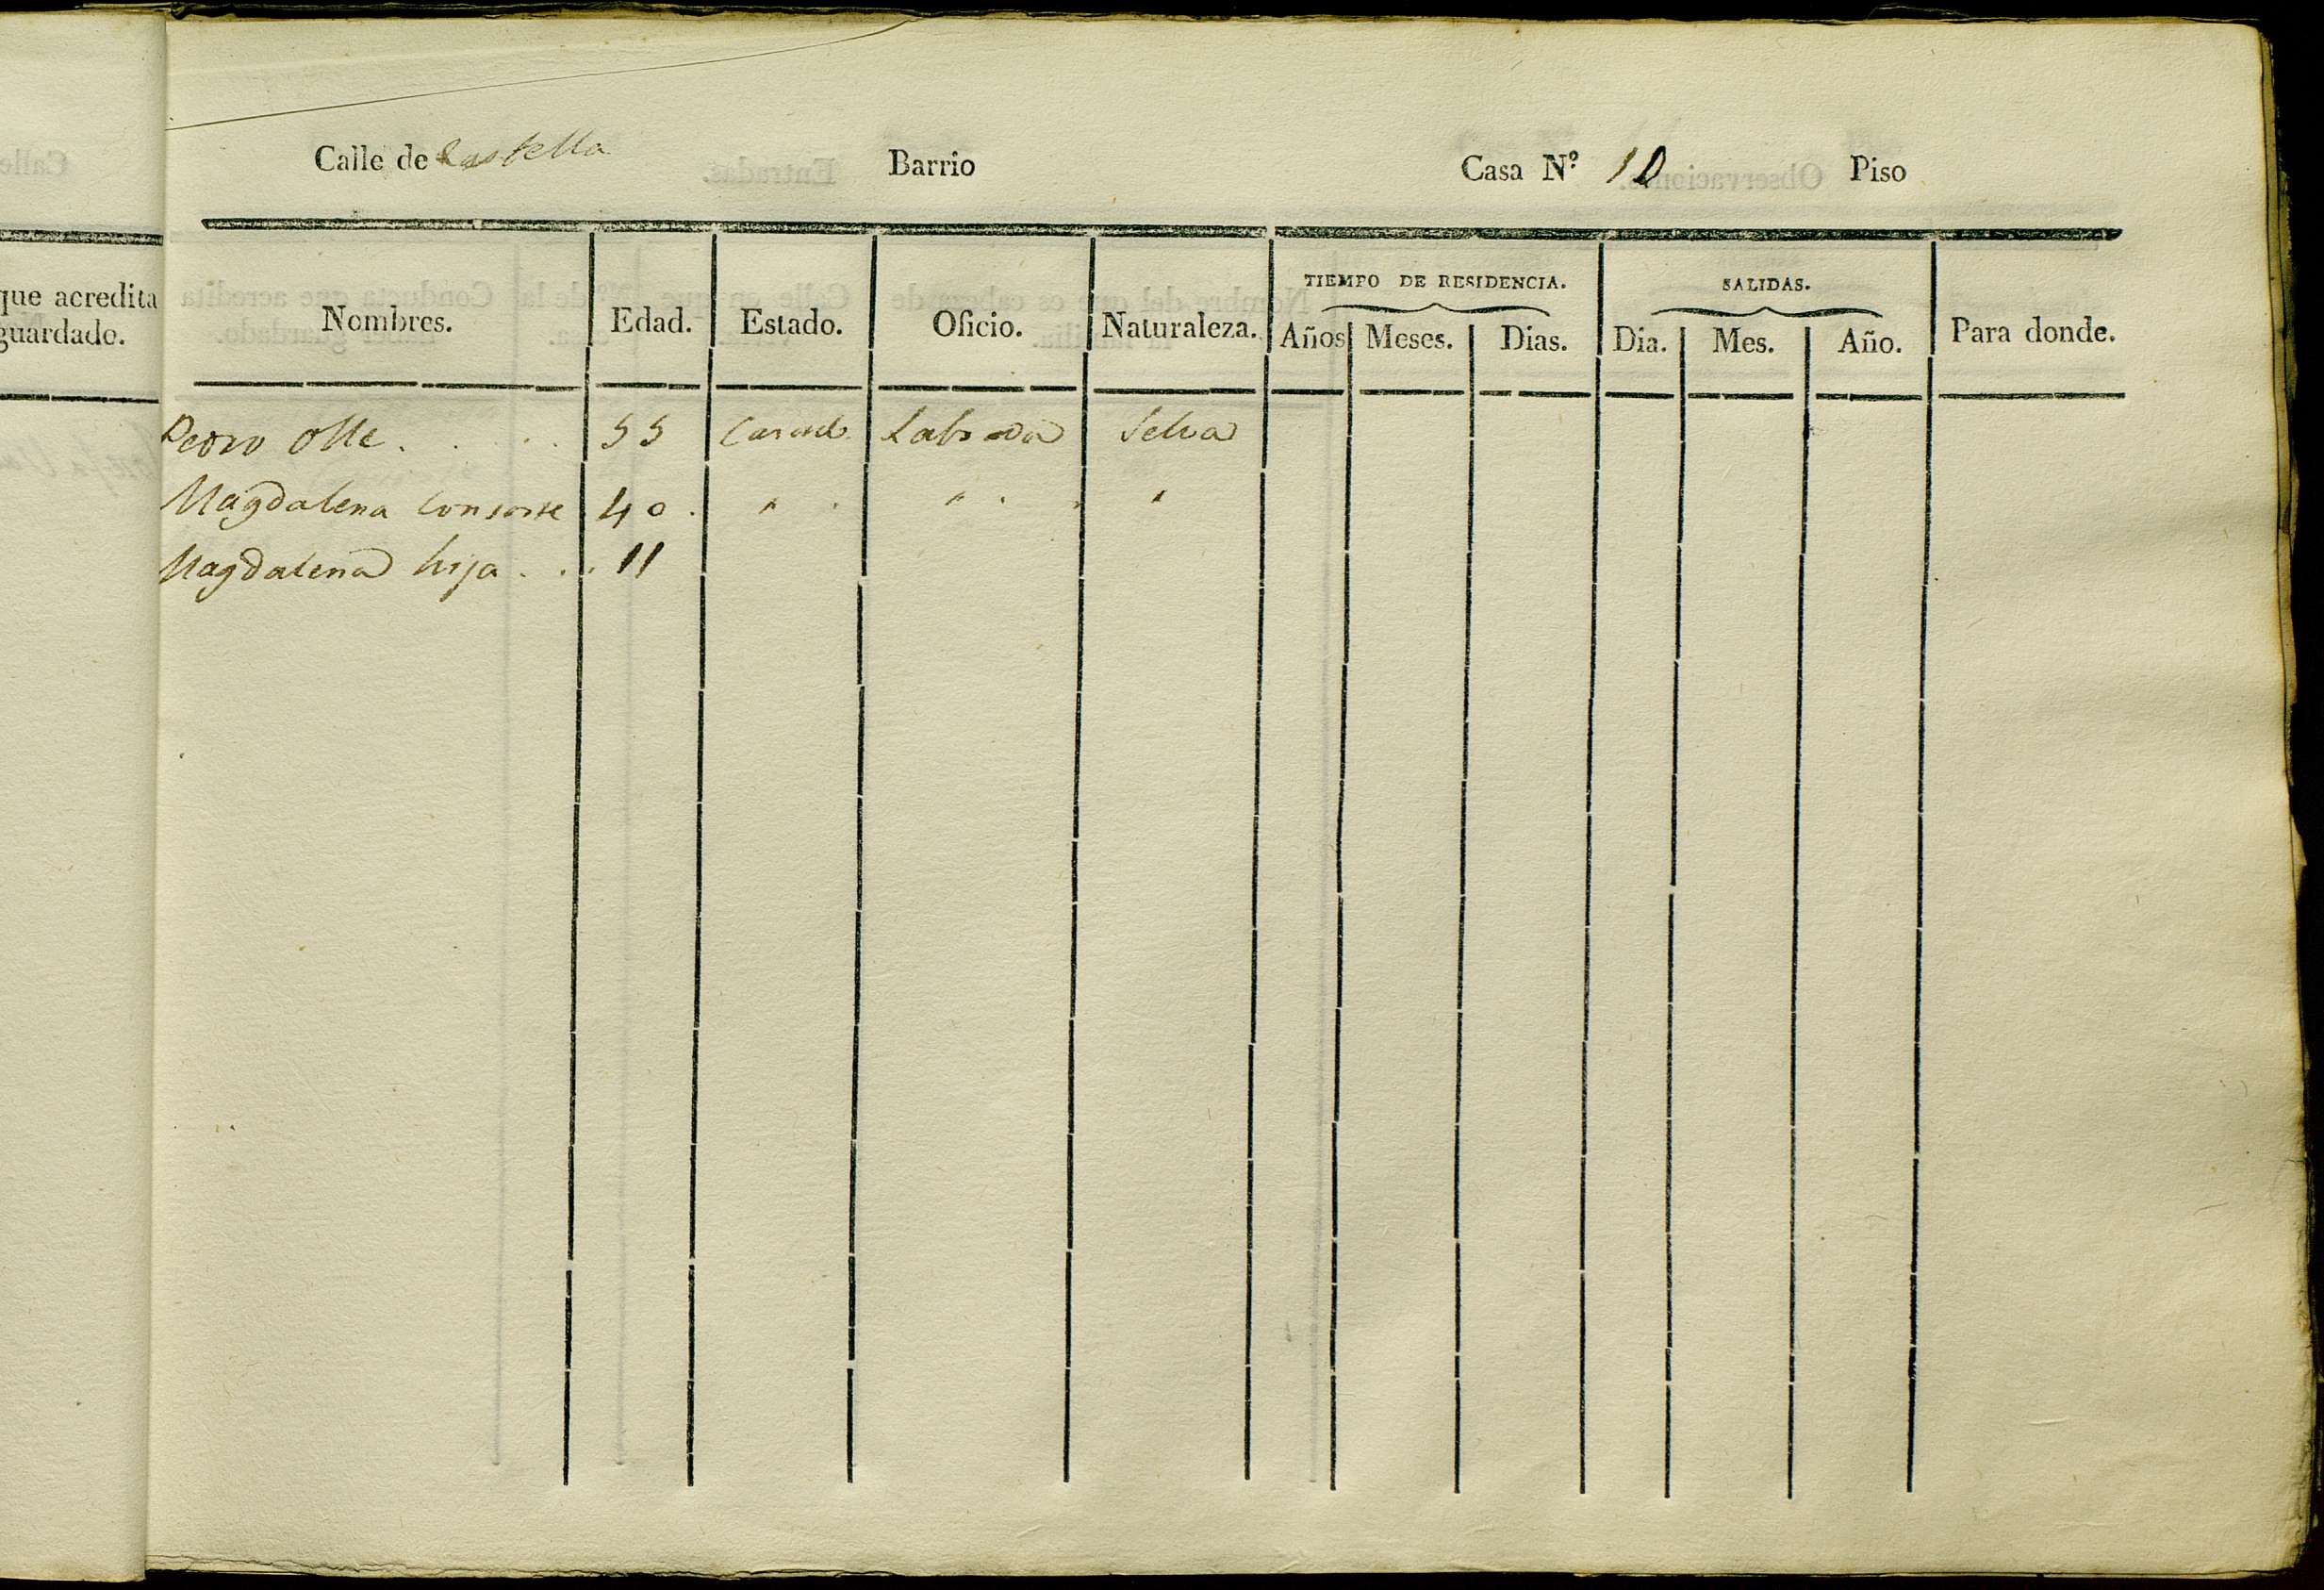 que acredita
guardado.
Calle de Castella Barrio Casa Nº 10 Piso
Nombres. Edad. Estado. Oficio. Naturaleza. TIEMPO DE RESIDENCIA. Años Meses. Dias. SALIDAS. Dia. Mes. Año. Para donde.
Pedro Olle . . . . 55 Casado Labrador Selva
Magdalena Consorte 40 . " . " . . "
Magdalena hija . . . 11